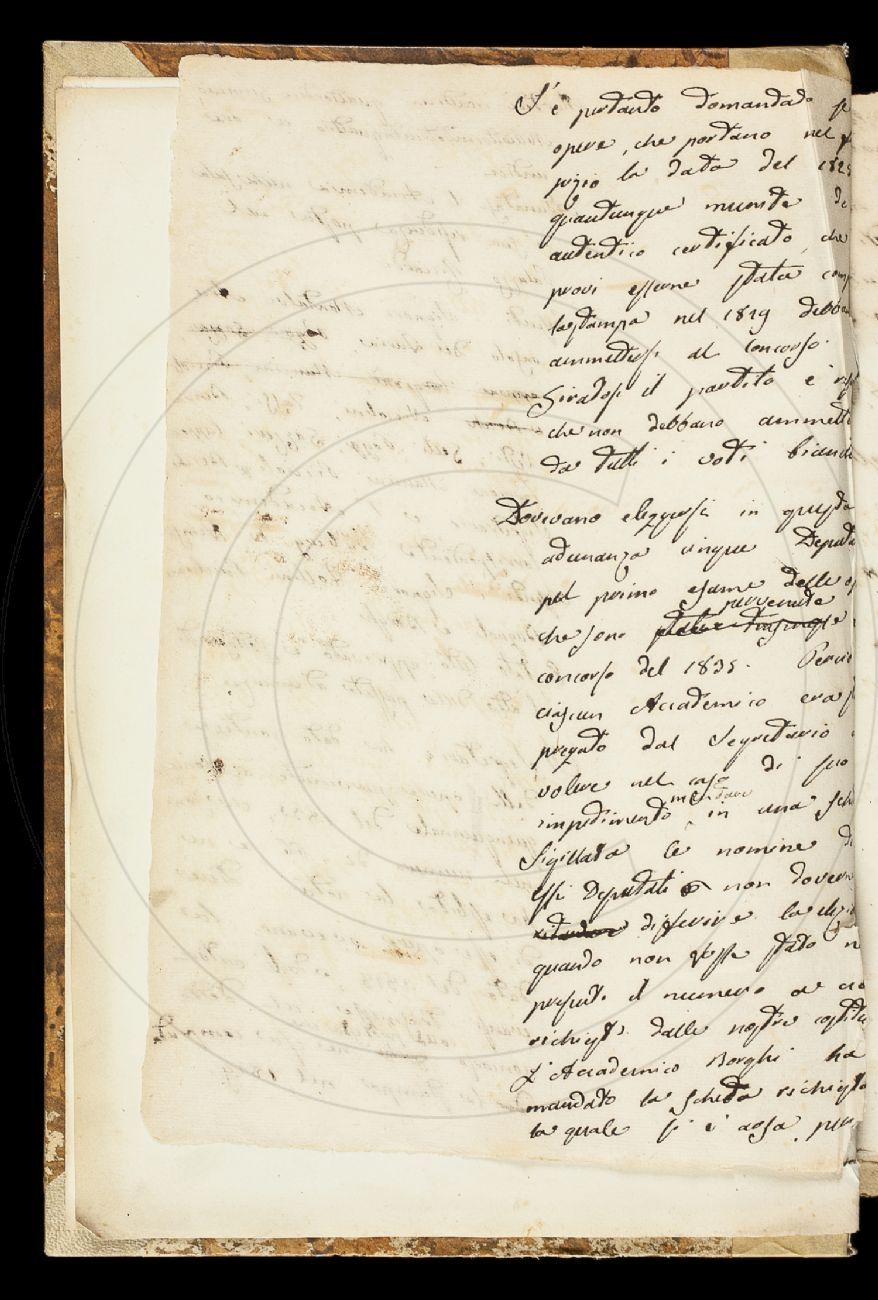 S'è pertanto domandato se
opere, che portano nel
pizio la data del 182
quantunque munite de
autentico certificato, che
provi esserne stata comp
la stampa nel 1829 debba
ammettersi al Concorso.
Giratosi il partito è
che non debbano ammette
da tutti i voti bianchi
Dovevano eleggersi in questa
adunanza cinque Deputa
pel primo esame delle op
pervenute
che sono state trasmesse
concorso del 1835. Perciò
ciascun Accademico era
pregato dal Segretario
volere nel caso di suo
mandare
impedimento in una sche
sigillata le nomine di
essi Deputati non doven
differire la elez
quando non fosse stato
presente il numero
richiesto dalle nostre costitu
L'Accademico Borghi ha
mandato la scheda richiesta
la quale si è aperta